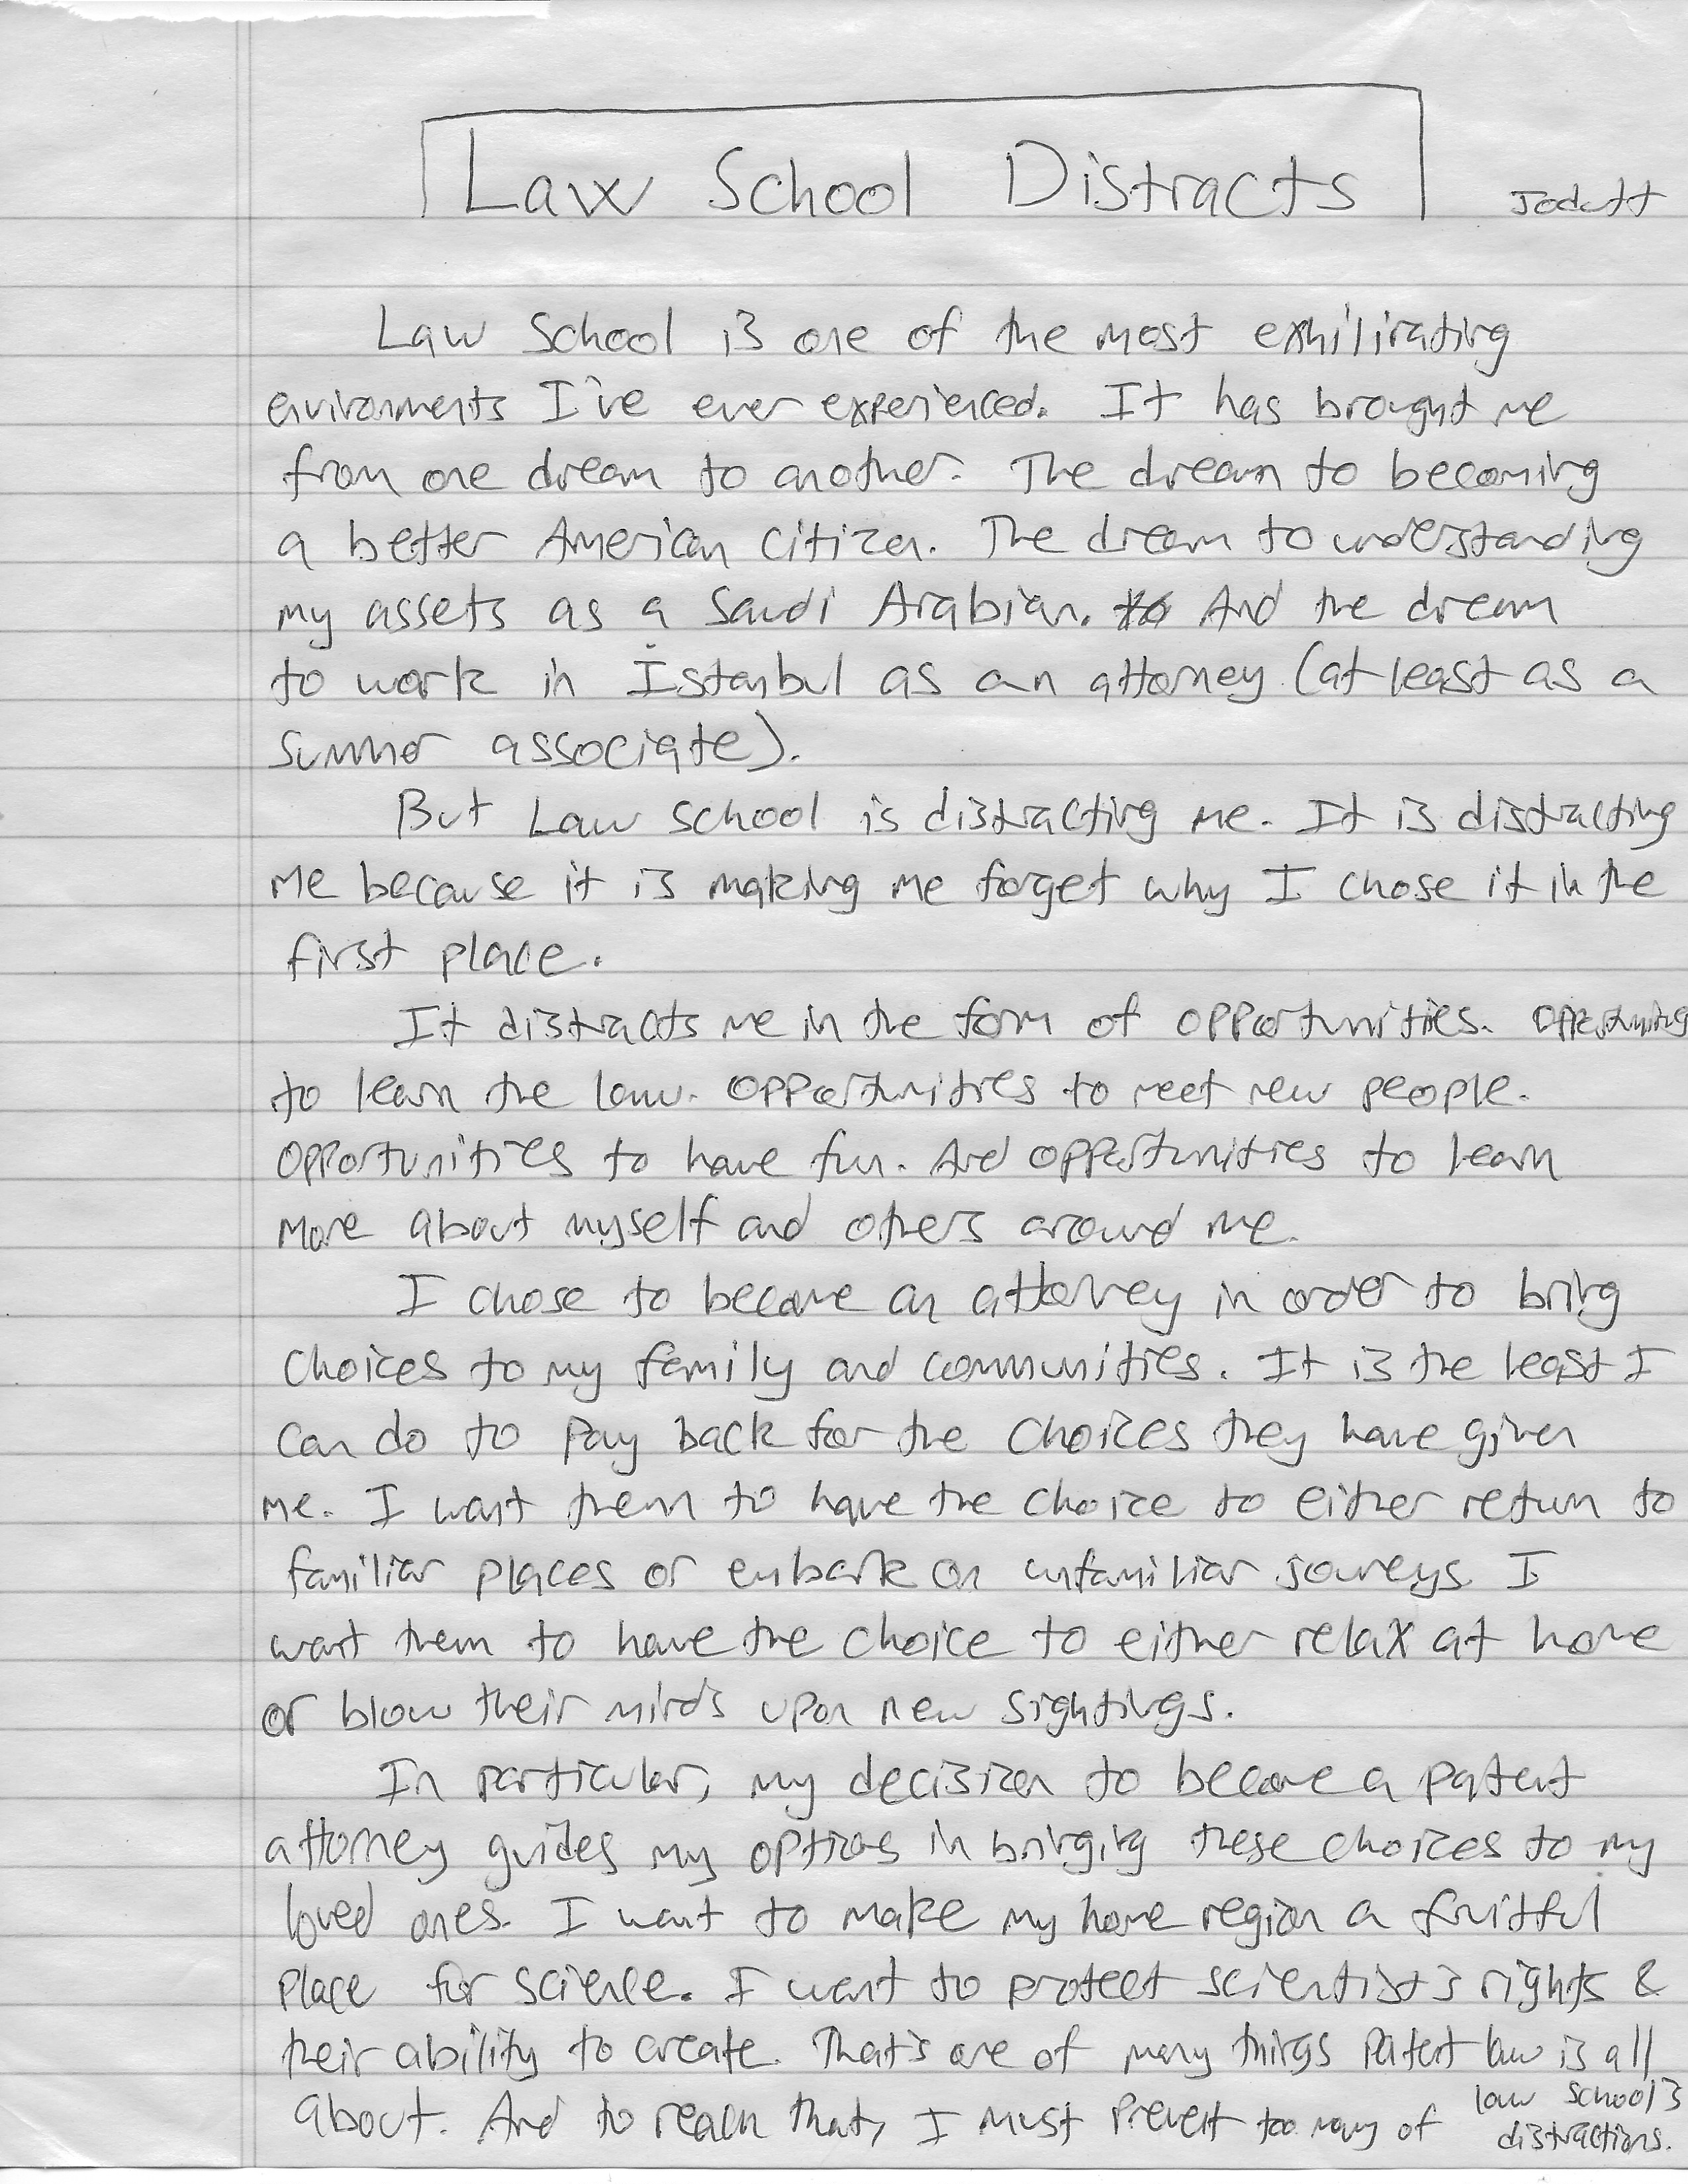 Law School Distracts
Jodutt
Law School is one of the most exhilirating
environments I've ever experienced. It has brought me
from one dream to another. The dream to becoming
a better American citizen. The dream to understanding
my assets as a Saudi Arabian. And the dream
to work in İstanbul as an attorney (at least as a
summer associate).
But Law school is distracting me. It is distracting
me because it is making me forget why I chose it in the
first place.
It distracts me in the form of opportunities. Opportunities
to learn the law. Opportunities to meet new people.
Opportunities to have fun. And opportunities to learn
more about myself and others around me.
I chose to become an attorney in order to bring
choices to my family and communities. It is the least I
can do to pay back for the choices they have given
me. I want them to have the choice to either return to
familiar places or embark on unfamiliar joureys. I
want them to have the choice to either relax at home
or blow their minds upon new sightings.
In particular, my decision to become a patent
attorney guides my options in bringing these choices to my
loved ones. I want to make my home region a fruitful
place for science. I want to protect scientist's rights &
their ability to create. That's one of many things patent law is all
about. And to reach that, I must prevent too many of law school's
distractions.